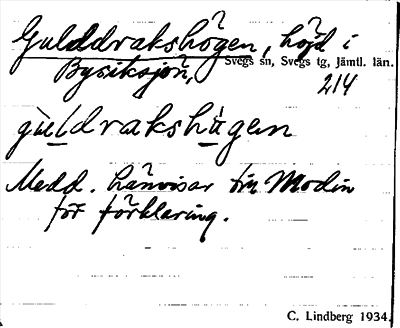 Gulddrakshögen, höjd i
Bysiksjön, Svegs sn, Svegs tg, Jämtl. län.
214
gùldrakshägen
Medd. hänvisar till Modin
för förklaring.
C. Lindberg 1934.